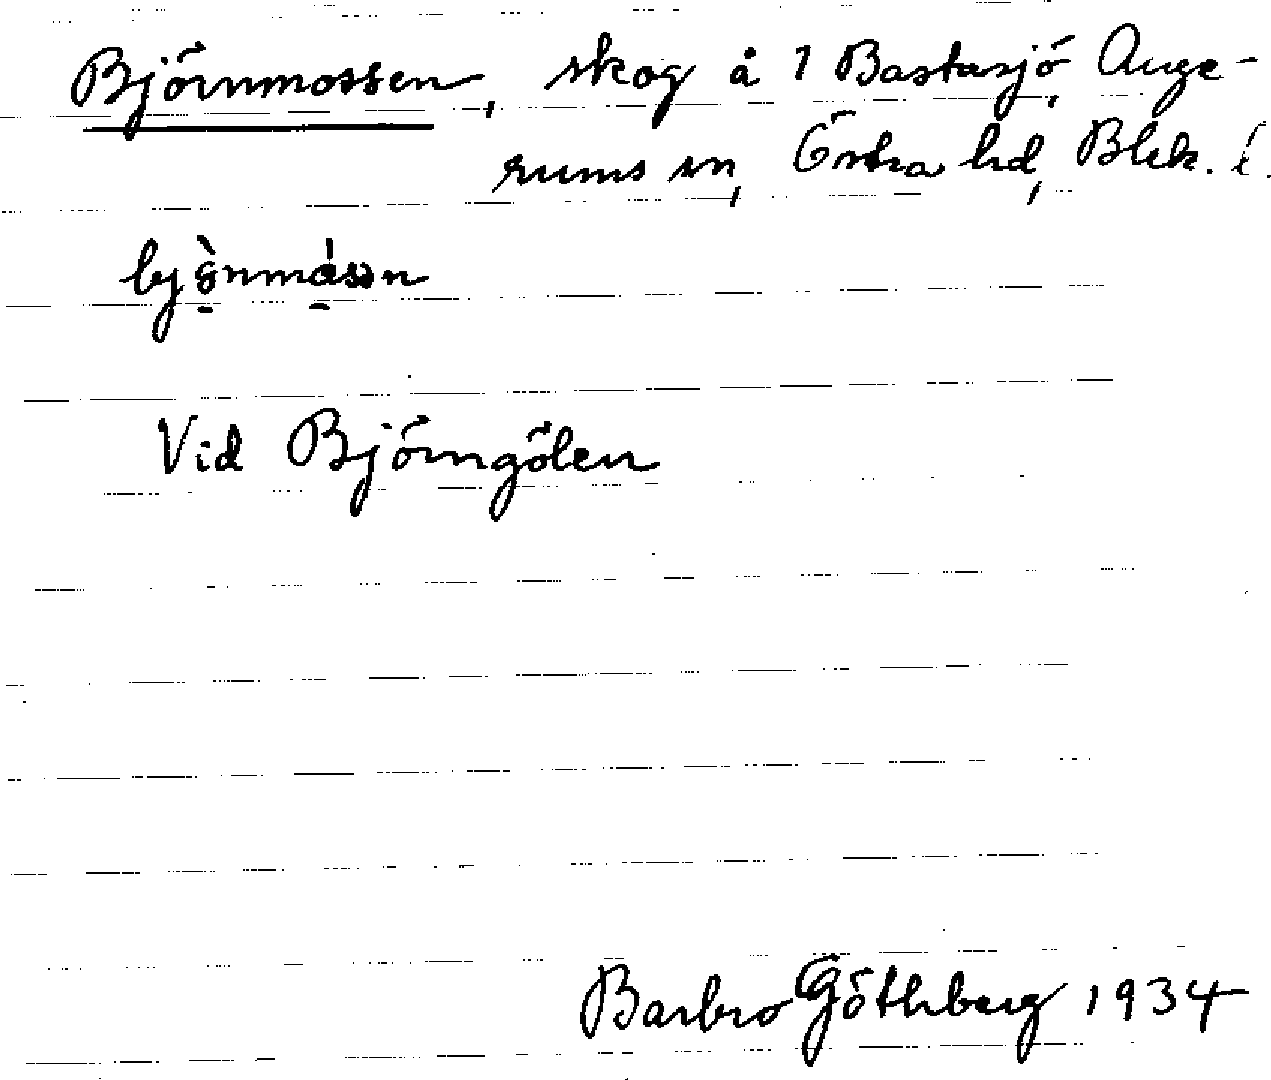 Björnmossen, skog å 1 Bastasjö, Auge-
rums sn, Östra hd, Blek. l.
Vid Björngölen
Barbro Göthberg 1934